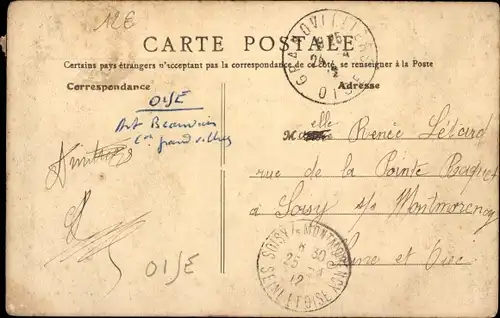 12€
CARTE POSTALE
Certains pays étrangers n'acceptant pas la correspondance de ce côté, se renseigner à la Poste
Correspondance
Adresse
OISE
Art Beauvais
GRANDVILLIERS
OISE
elle
M Renée Létard
rue de la Pointe Raquet
à Soisy s/s Montmorency
Seine et Oise
SOISY-S-MONTMORENCY
8 30
25
12
SEINE ET OISE
OISE